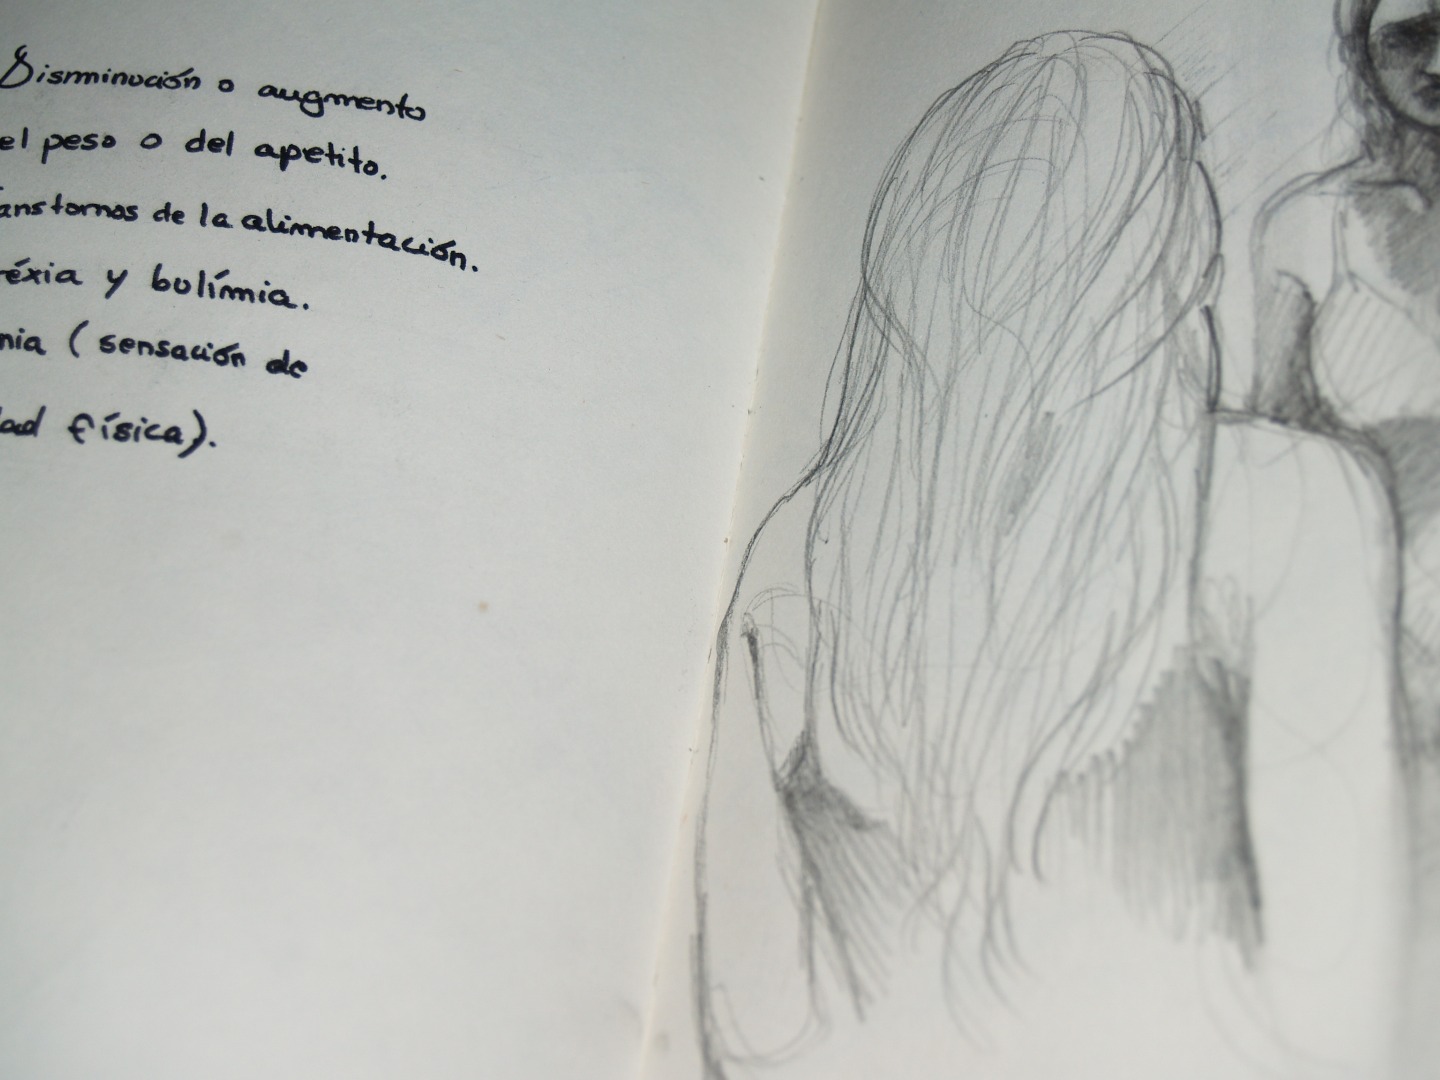 Disminución o augmento
el peso o del apetito.
anstornos de la alimentación.
éxia y bulímia.
nia (sensación de
dad física).